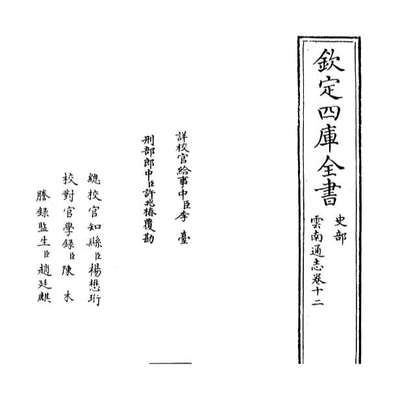 欽定四庫全書
史部
雲南通志卷十二
詳校官給事中臣李臺
刑部郎中臣許兆椿覆勘
總校官知縣臣楊懋珩
校對官學録臣陳木
謄録監生臣趙廷麒